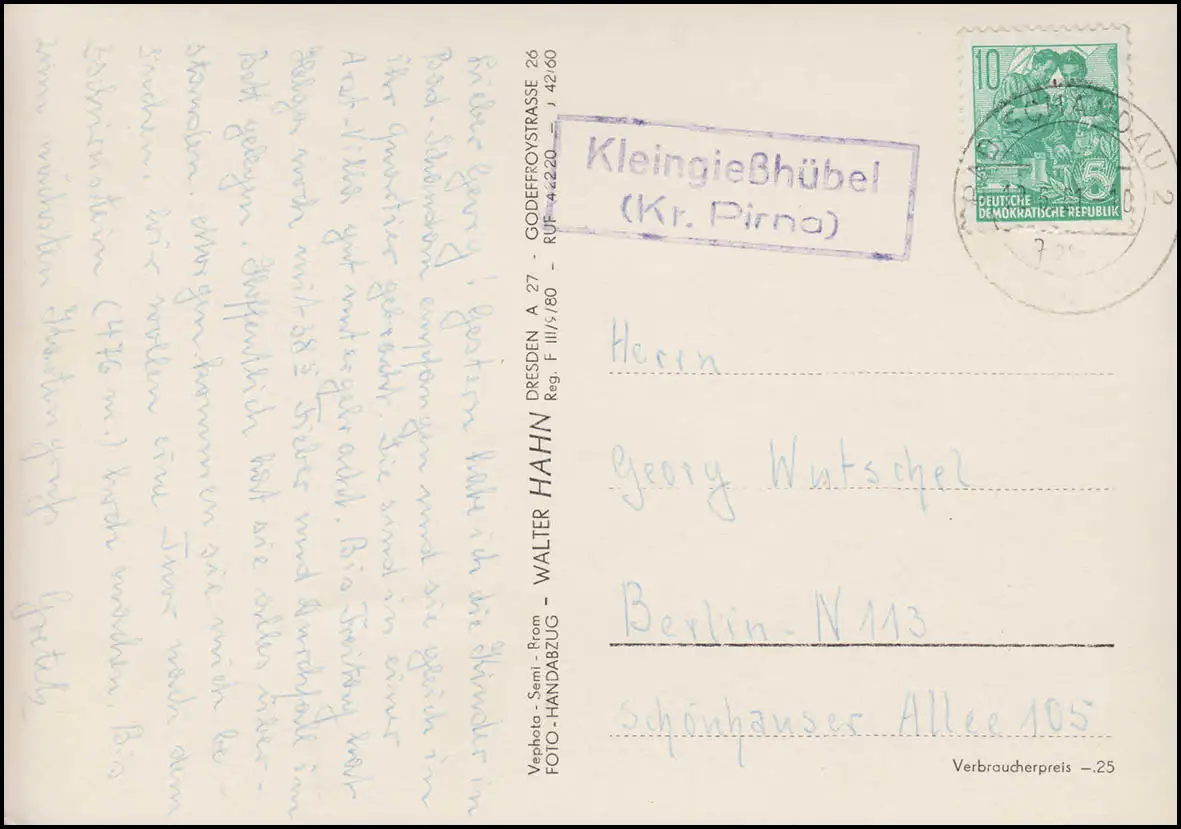 Lieber Georg! Gestern habe ich die Kinder in
Bad-Schandau empfangen und sie gleich in
ihr Quartier gebracht. Sie sind in einer
Arzt-Villa gut untergebracht. Bis Freitag hat
Helga noch mit 38 5 Fieber und Durchfall im
Bett gelegen. Hoffentlich hat sie alles über-
standen. Morgen kommen sie mich be
suchen. Wir wollen eine Tour nach dem
(476 m.) hoch machen. Bis
zum nächsten
Gretel
Vephota - Semi - Prom
FOTO-HANDABZUG – WALTER HAHN DRESDEN A 27 - GODEFFROYSTRASSE 26
Reg. F III/9/80 – RUF 42220 – J 42/60
Kleingießhübel
(Kr. Pirna)
10
5
DEUTSCHE
DEMOKRATISCHE REPUBLIK
BAD SCHANDAU 2
Herrn
Georg Wutschel
Berlin-N 113
Schönhauser Allee 105
Verbraucherpreis –.25